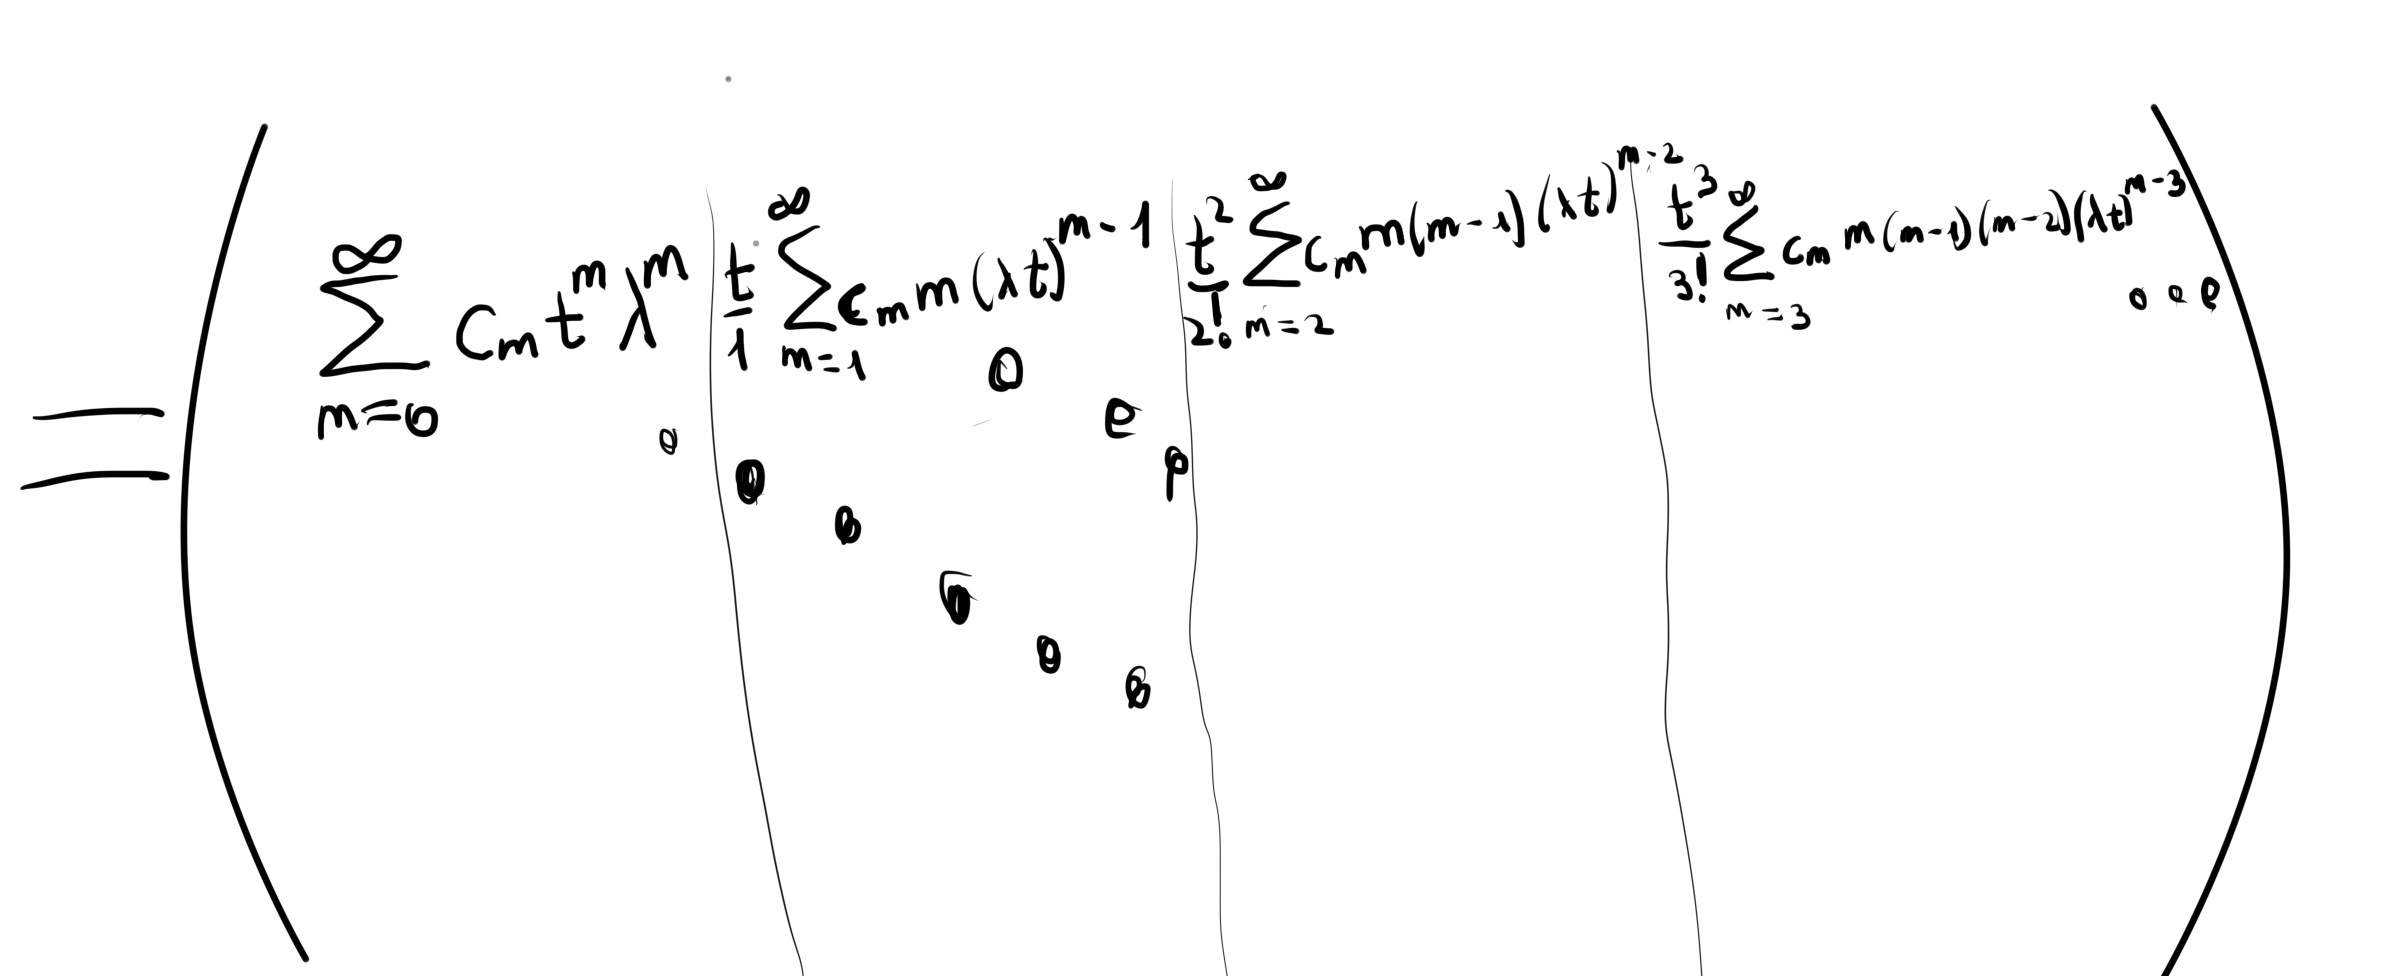 = ( ∑_{m=0}^{∞} c_m t^m λ^m | t/1 ∑_{m=1}^{∞} c_m m (λt)^{m-1} | t^2/2! ∑_{m=2}^{∞} c_m m(m-1) (λt)^{m-2} | t^3/3! ∑_{m=3}^{∞} c_m m(m-1)(m-2)(λt)^{m-3} ... )